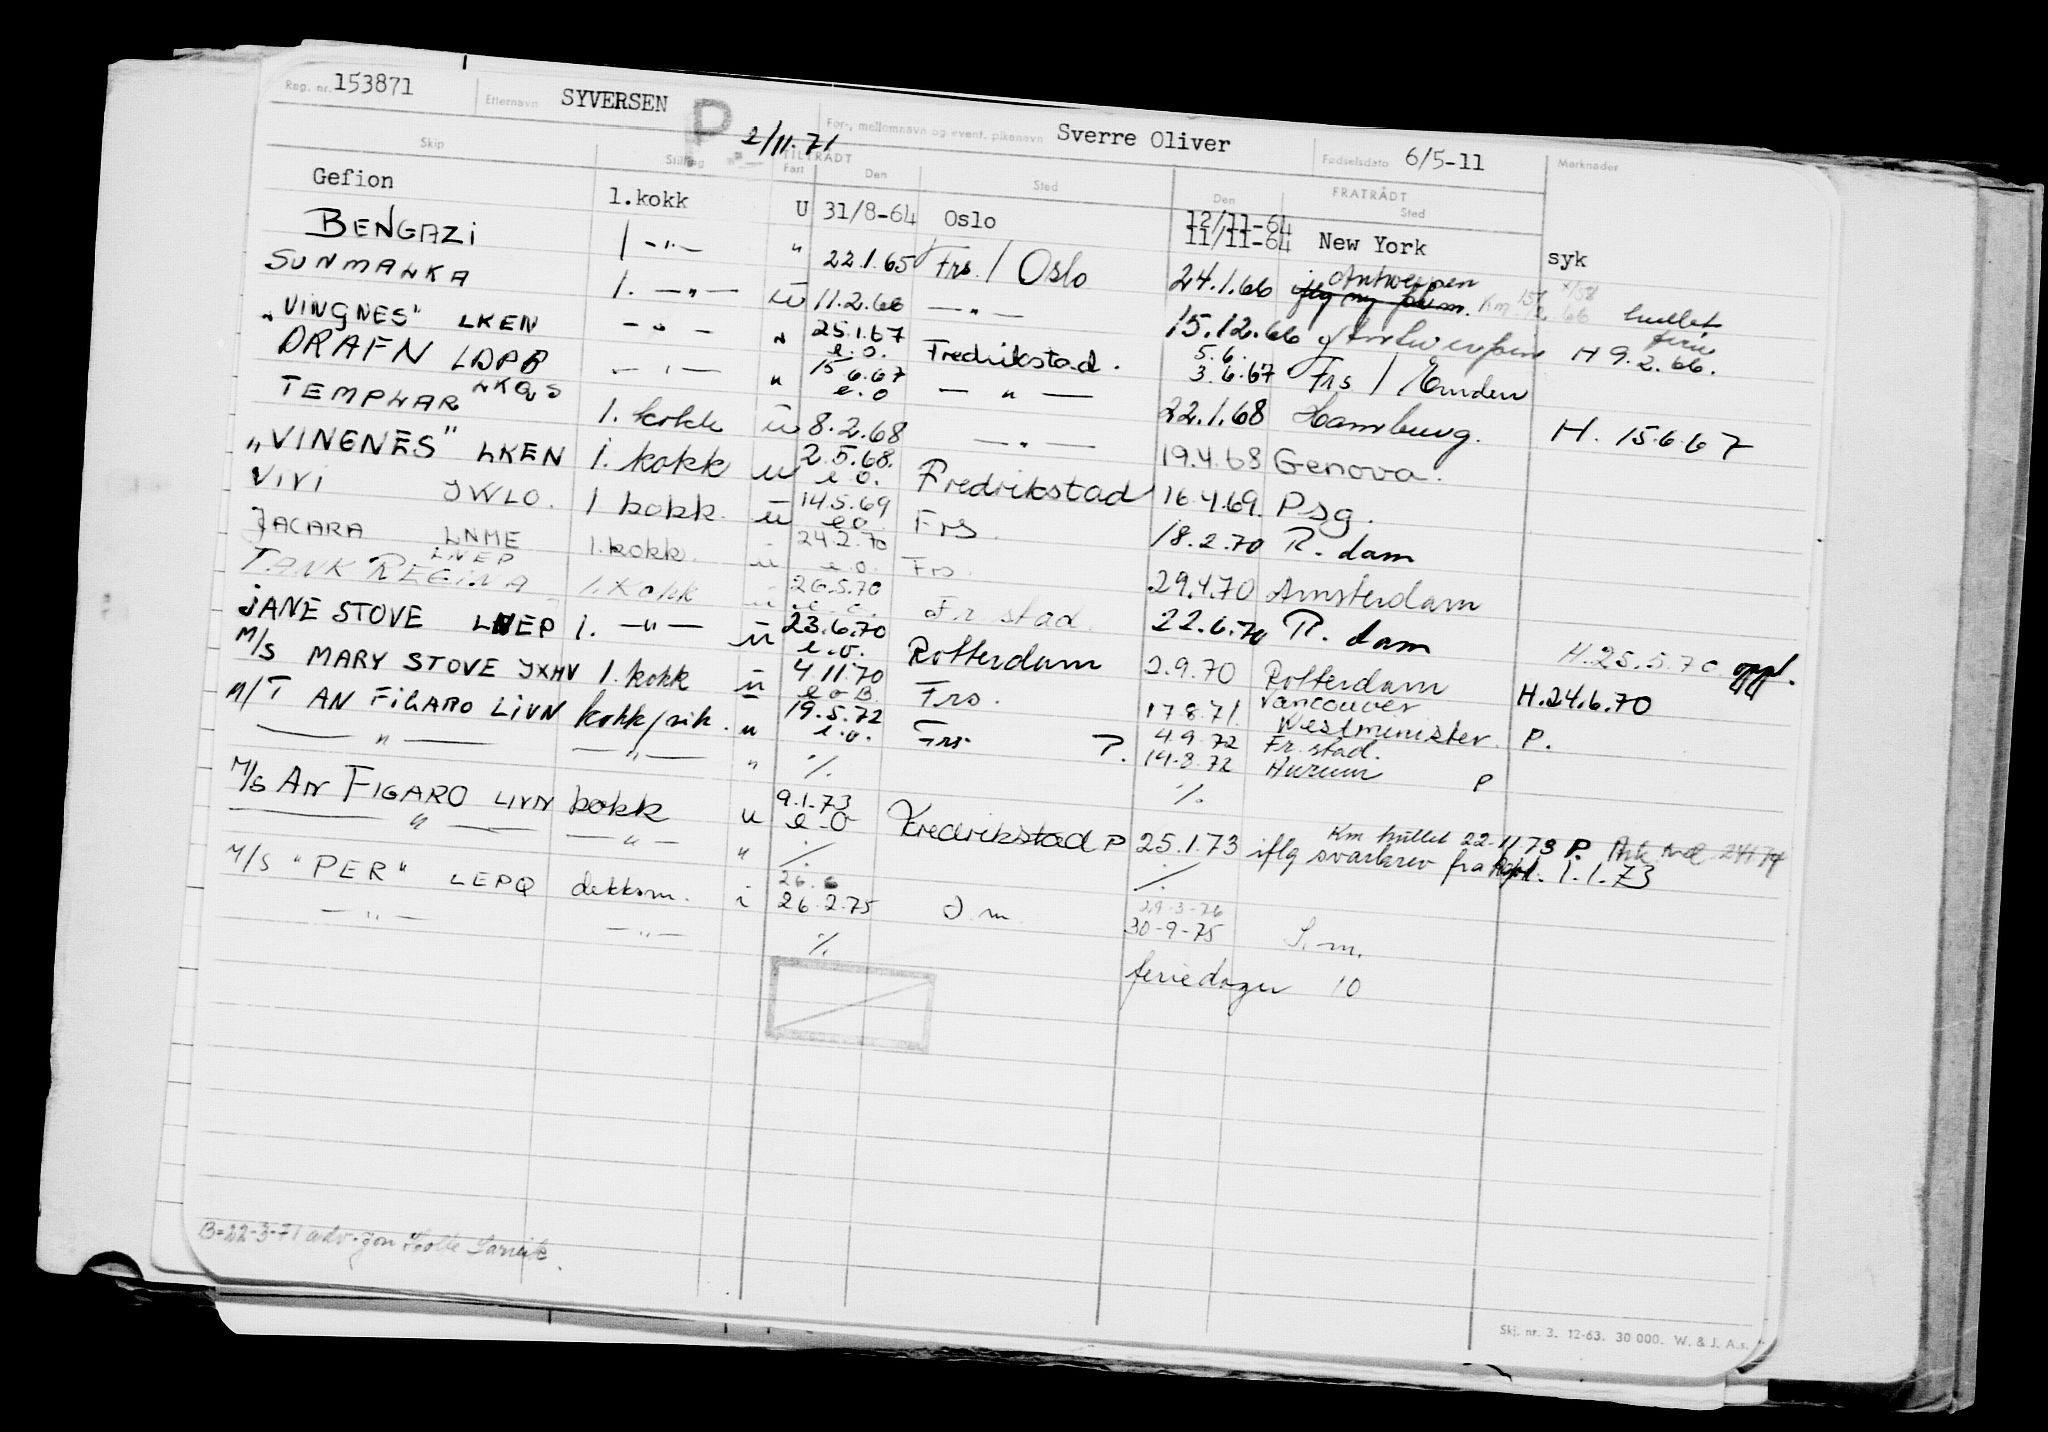 Reg. nr. 153871 Etternavn SYVERSEN P 2/11.71 For-, mellomnavn og event. pikenavn Sverre Oliver Fødselsdato 6/5-11 Merknader
Skip Stilling TILTRÅDT FRATRÅDT
Fart Den Sted Den Sted
Gefion 1.kokk U 31/8-64 Oslo 12/11-64
11/11-64 New York syk
BENGAZI 1 -"- " 22.1.65 Frs. / Oslo 24.1.66 Antwerpen
SUNMALKA 1. -"- u 11.2.66 -"- 15.12.66 Antwerpen H 9.2.66.
"VINGNES" LKEN -"- " 25.1.67 e.o. Fredrikstad. 5.6.
3.6.67 Frs / Emden
DRAFN LDPB -"- " 15.6.67 e.o -"- 22.1.68 Hamburg. H. 15.6.67
TEMPLAR LKQS 1. kokk u 8.2.68 -"- 19.4.68 Genova.
"VINGNES" LKEN 1. kokk u 2.5.68. e.o. Fredrikstad 16.4.69. Psg.
VIVI JWLO. 1 kokk. u 14.5.69 e.o. Frs 18.2.70 R.dam
JACARA LNME 1.kokk. u 24.2.70 e.o. Frs. 29.4.70 Amsterdam
TANK REGINA LNEP 1. Kokk u 26.5.70 e.o. Fr.stad. 22.6.70 R.dam H.25.5.70 oppl.
JANE STOVE LNEP 1. -"- u 23.6.70 e.o. Rotterdam 2.9.70 Rotterdam H.24.6.70
M/S MARY STOVE JXHV 1. kokk u 4.11.70 e o B. Frs. 17.8.71. Vancouver
Westminister. P.
M/T AN FIGARO LIVN kokk/stk. u 19.5.72 e.o. Frs. P. 4.9.72 Fr.stad.
-"- -"- " % 14.8.72 Hurum P
%
M/S AN FIGARO LIVN kokk u 9.1.73 e.o Fredrikstad P 25.1.73 Km hullet 22.11.73 P.
-"- -"- " % % iflg svarbrev fra 1.1.73
M/S "PER" LEPQ dekksm. i 26.6
26.2.75 S.m. 29-3-76
30-9-75 S.m.
-"- -"- %
feriedager 10
B=22-3-71 adv.
Skj. nr. 3. 12-63. 30 000. W. & J. A.s.